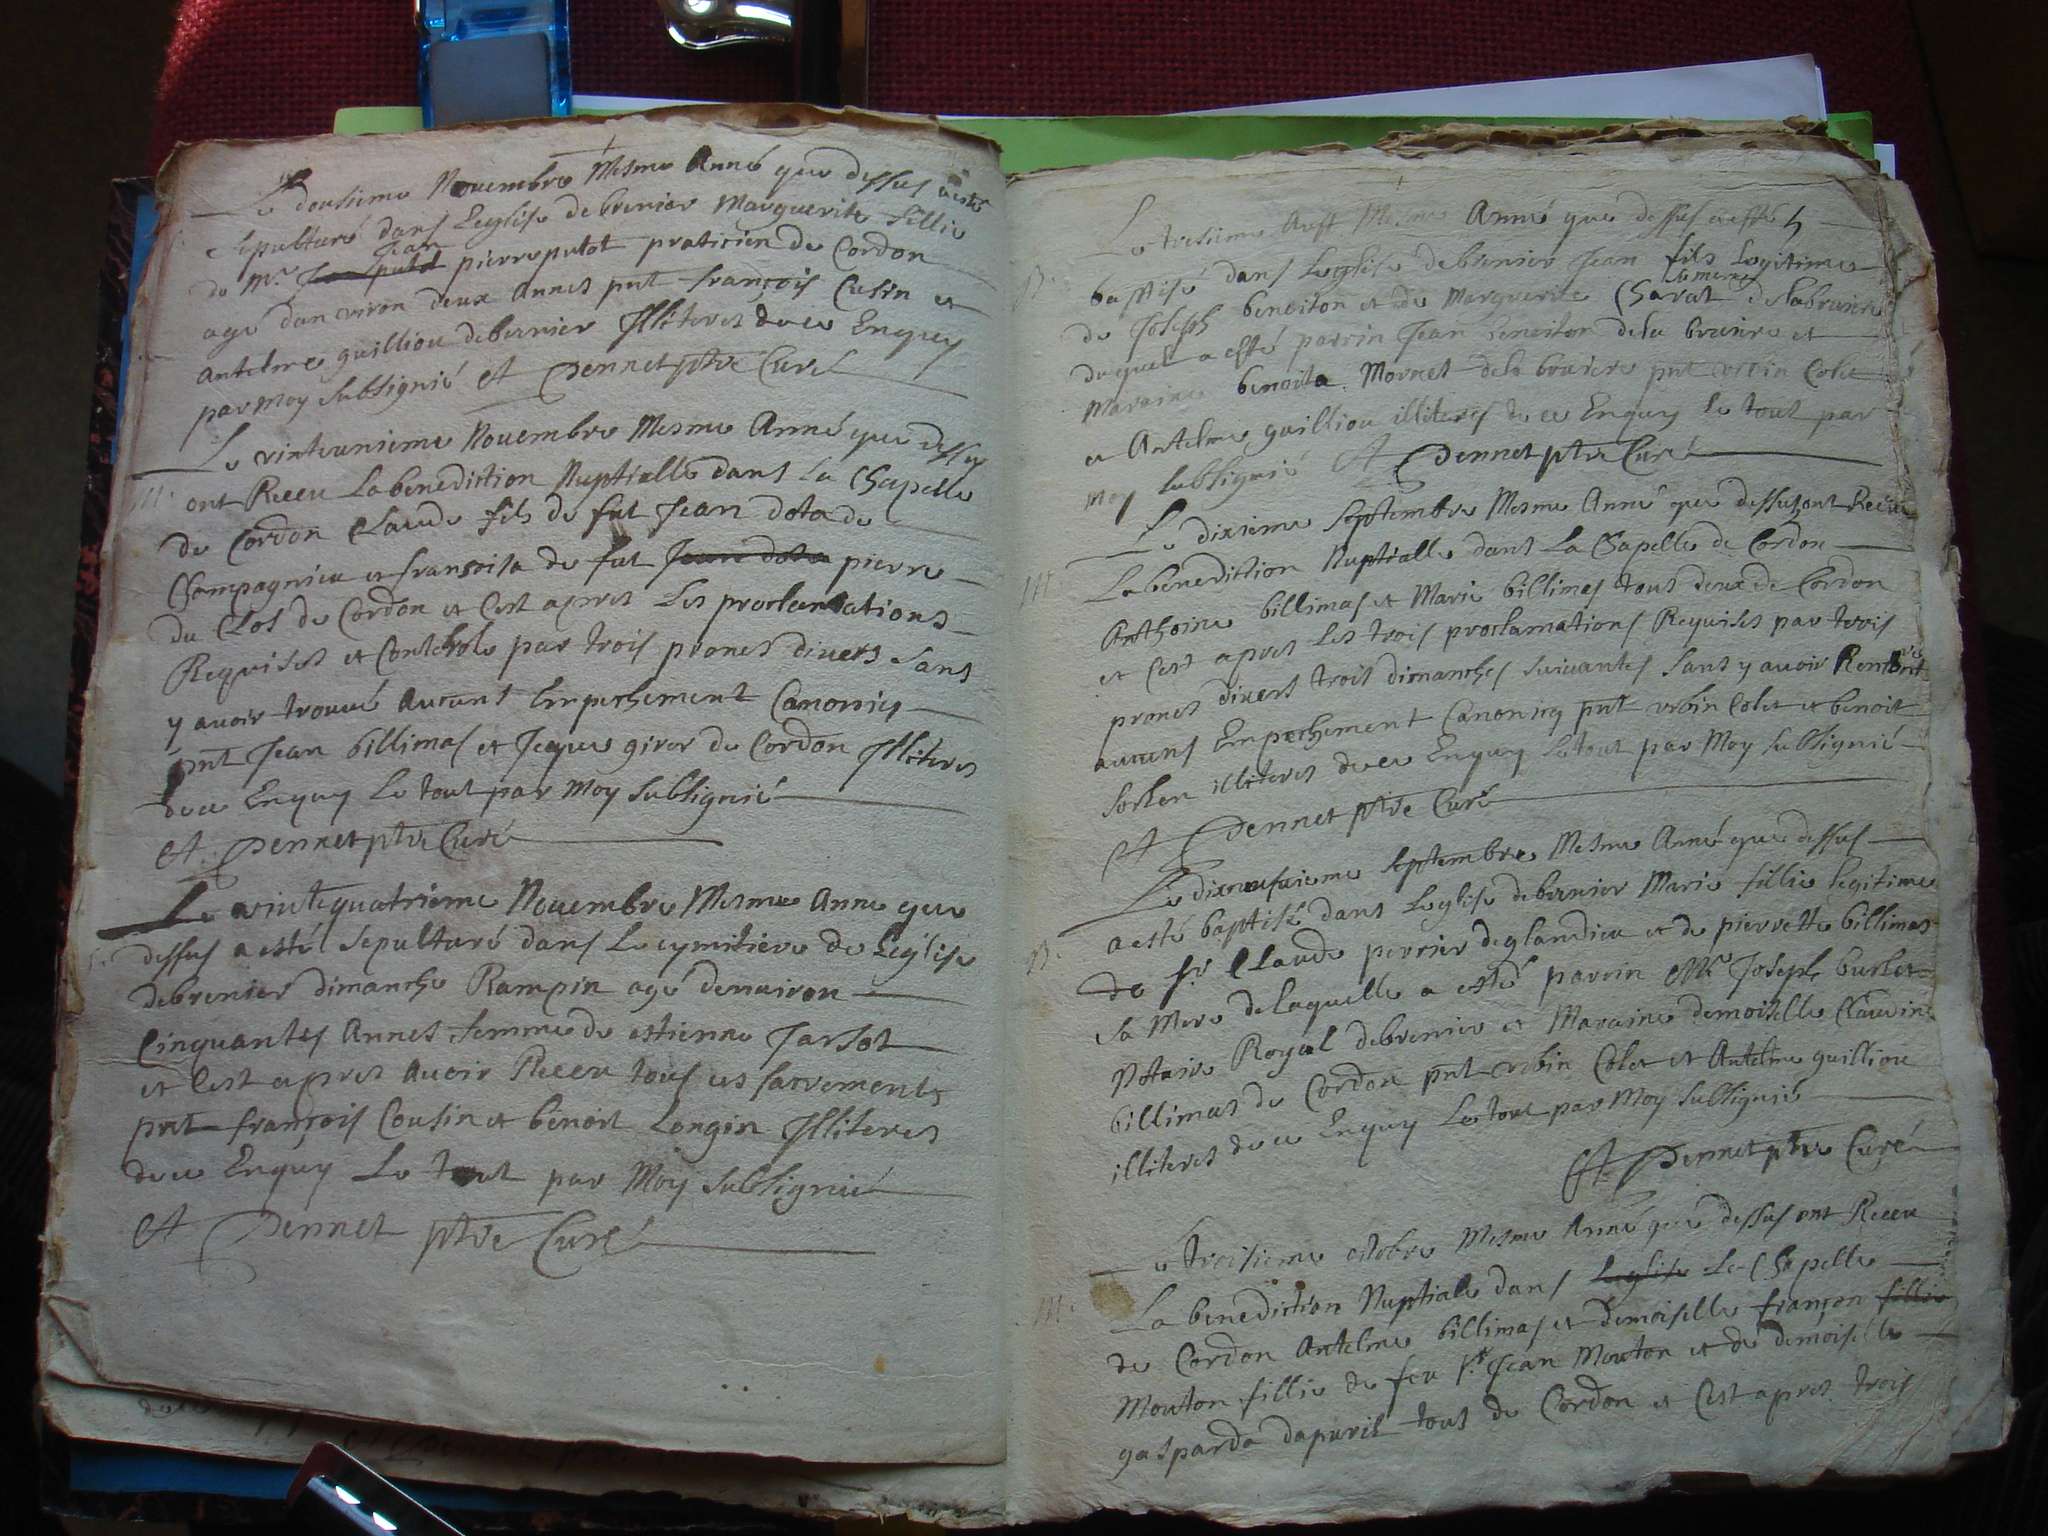 Le dousieme Nouembre Mesme Anné que dessus a esté
sepulturé dans Leglise debrenier Marguerite fillie
Jean
de Mr. pierre putot praticien de Cordon
agé dan viron deux Annes pnt françois Cusin et
Antelme guilliou debrenier Illiteres de ce Enquy
par moy subsignié et Dennet ptre Curé
Le vinteunieme Nouembre Mesme Anné que dessus
M. ont Receu La benediction Nuptialle dans La Chapelle
de Cordon Claude fils de fut Jean dota de
Champagnieu et fransoisa de fut Jean dota pierre
du Clos de Cordon et Cest apres Les proclamations
Requises et Controle par trois prones divers sans
y auoir trouué Aucuns Empechement Canonicq
pnt Jean billimas et Jeque giror de Cordon Illiteres
de ce Enquy Le tout par Moy subsignié
et Dennet ptre Curé
Le vintequatrieme Nouembre Mesme Anne que
dessus a esté sepulturé dans Le cymitiere de Leglise
debrenier dimanche Rampin agé denuiron
Cinquantes Annes femme de estienne Jarsot
et Cest apres Auoir Receu tous ces sacrements
pnt françois Cousin et benoit Longin Illiteres
de ce Enquy Le tout par Moy subsignié
et Dennet ptre Curé
Le tresieme Aust Mesme Anné que dessus a esté
B. baptisé dans Leglise debrenier Jean fils Legitime
sa mere
de Joseph benoiton et de Marguerite Charat de labruiere
duquel a esté parrin Jean benoiton dela bruiere et
Maraine benoita Mornet dela bruiere pnt vrbin Colet
et Antelme guilliou illiteres de ce Enquy Le tout par
moy subsignié et Dennet ptre Curé
Le dixieme septembre Mesme Anné que dessus ont Receu
M. La benediction Nuptialle dans La Chapelle de Cordon
Anthoine billimas et Marie billimas tous deux de Cordon
et Cest apres Les trois proclamations Requises par trois
prones divers trois dimanches suivantes sans y avoir Rencontré
aucuns Empechement Canonicq pnt vrbin Colet et benoit
illiteres de ce Enquy Le tout par Moy subsignié
et Dennet ptre Curé
Le dixneufuieme septembre Mesme Anné que dessus
B. a esté baptisé dans Leglise debrenier Marie fillie Legitime
de sr. Claude perrier deglandieu et de pierrette billimas
sa Mere de laquelle a esté parrin Mr. Joseph burlet
Notaire Royal debrenier et Maraine demoiselle Claudine
billimas de Cordon pnt vrbin Colet et Antelme guilliou
illiteres de ce Enquy Le tout par Moy subsignié
et Dennet ptre Curé
Le troisieme octobre Mesme Anné que dessus ont Receu
M. La benediction Nuptiale dans Leglise La Chapelle
de Cordon Antelme billimas et demoiselle françon fillie
Mouton fillie de feu sr. Jean Mouton et de demoiselle
gasparda dapuril tous de Cordon et Cest apres trois